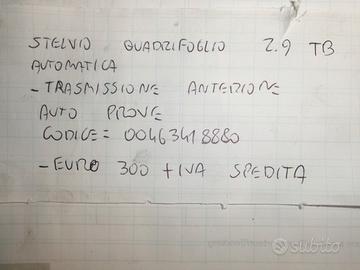 STELVIO QUADRIFOGLIO 2.9 TB
AUTOMATICA
- TRASMISSIONE ANTERIONE
AUTO PROVE
CODICE = 00463418880
- EURO 300 + IVA SPEDITA
subito